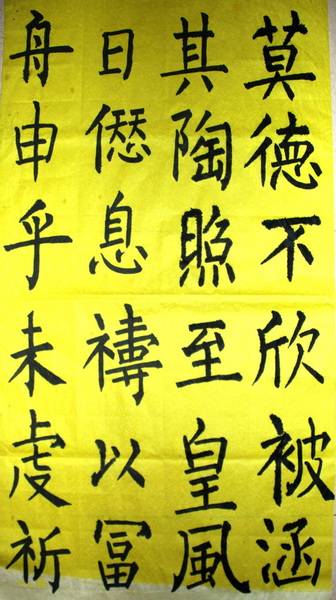 莫德不欣被涵
其陶照至皇風
日息禱以冨
舟申乎未虔祈